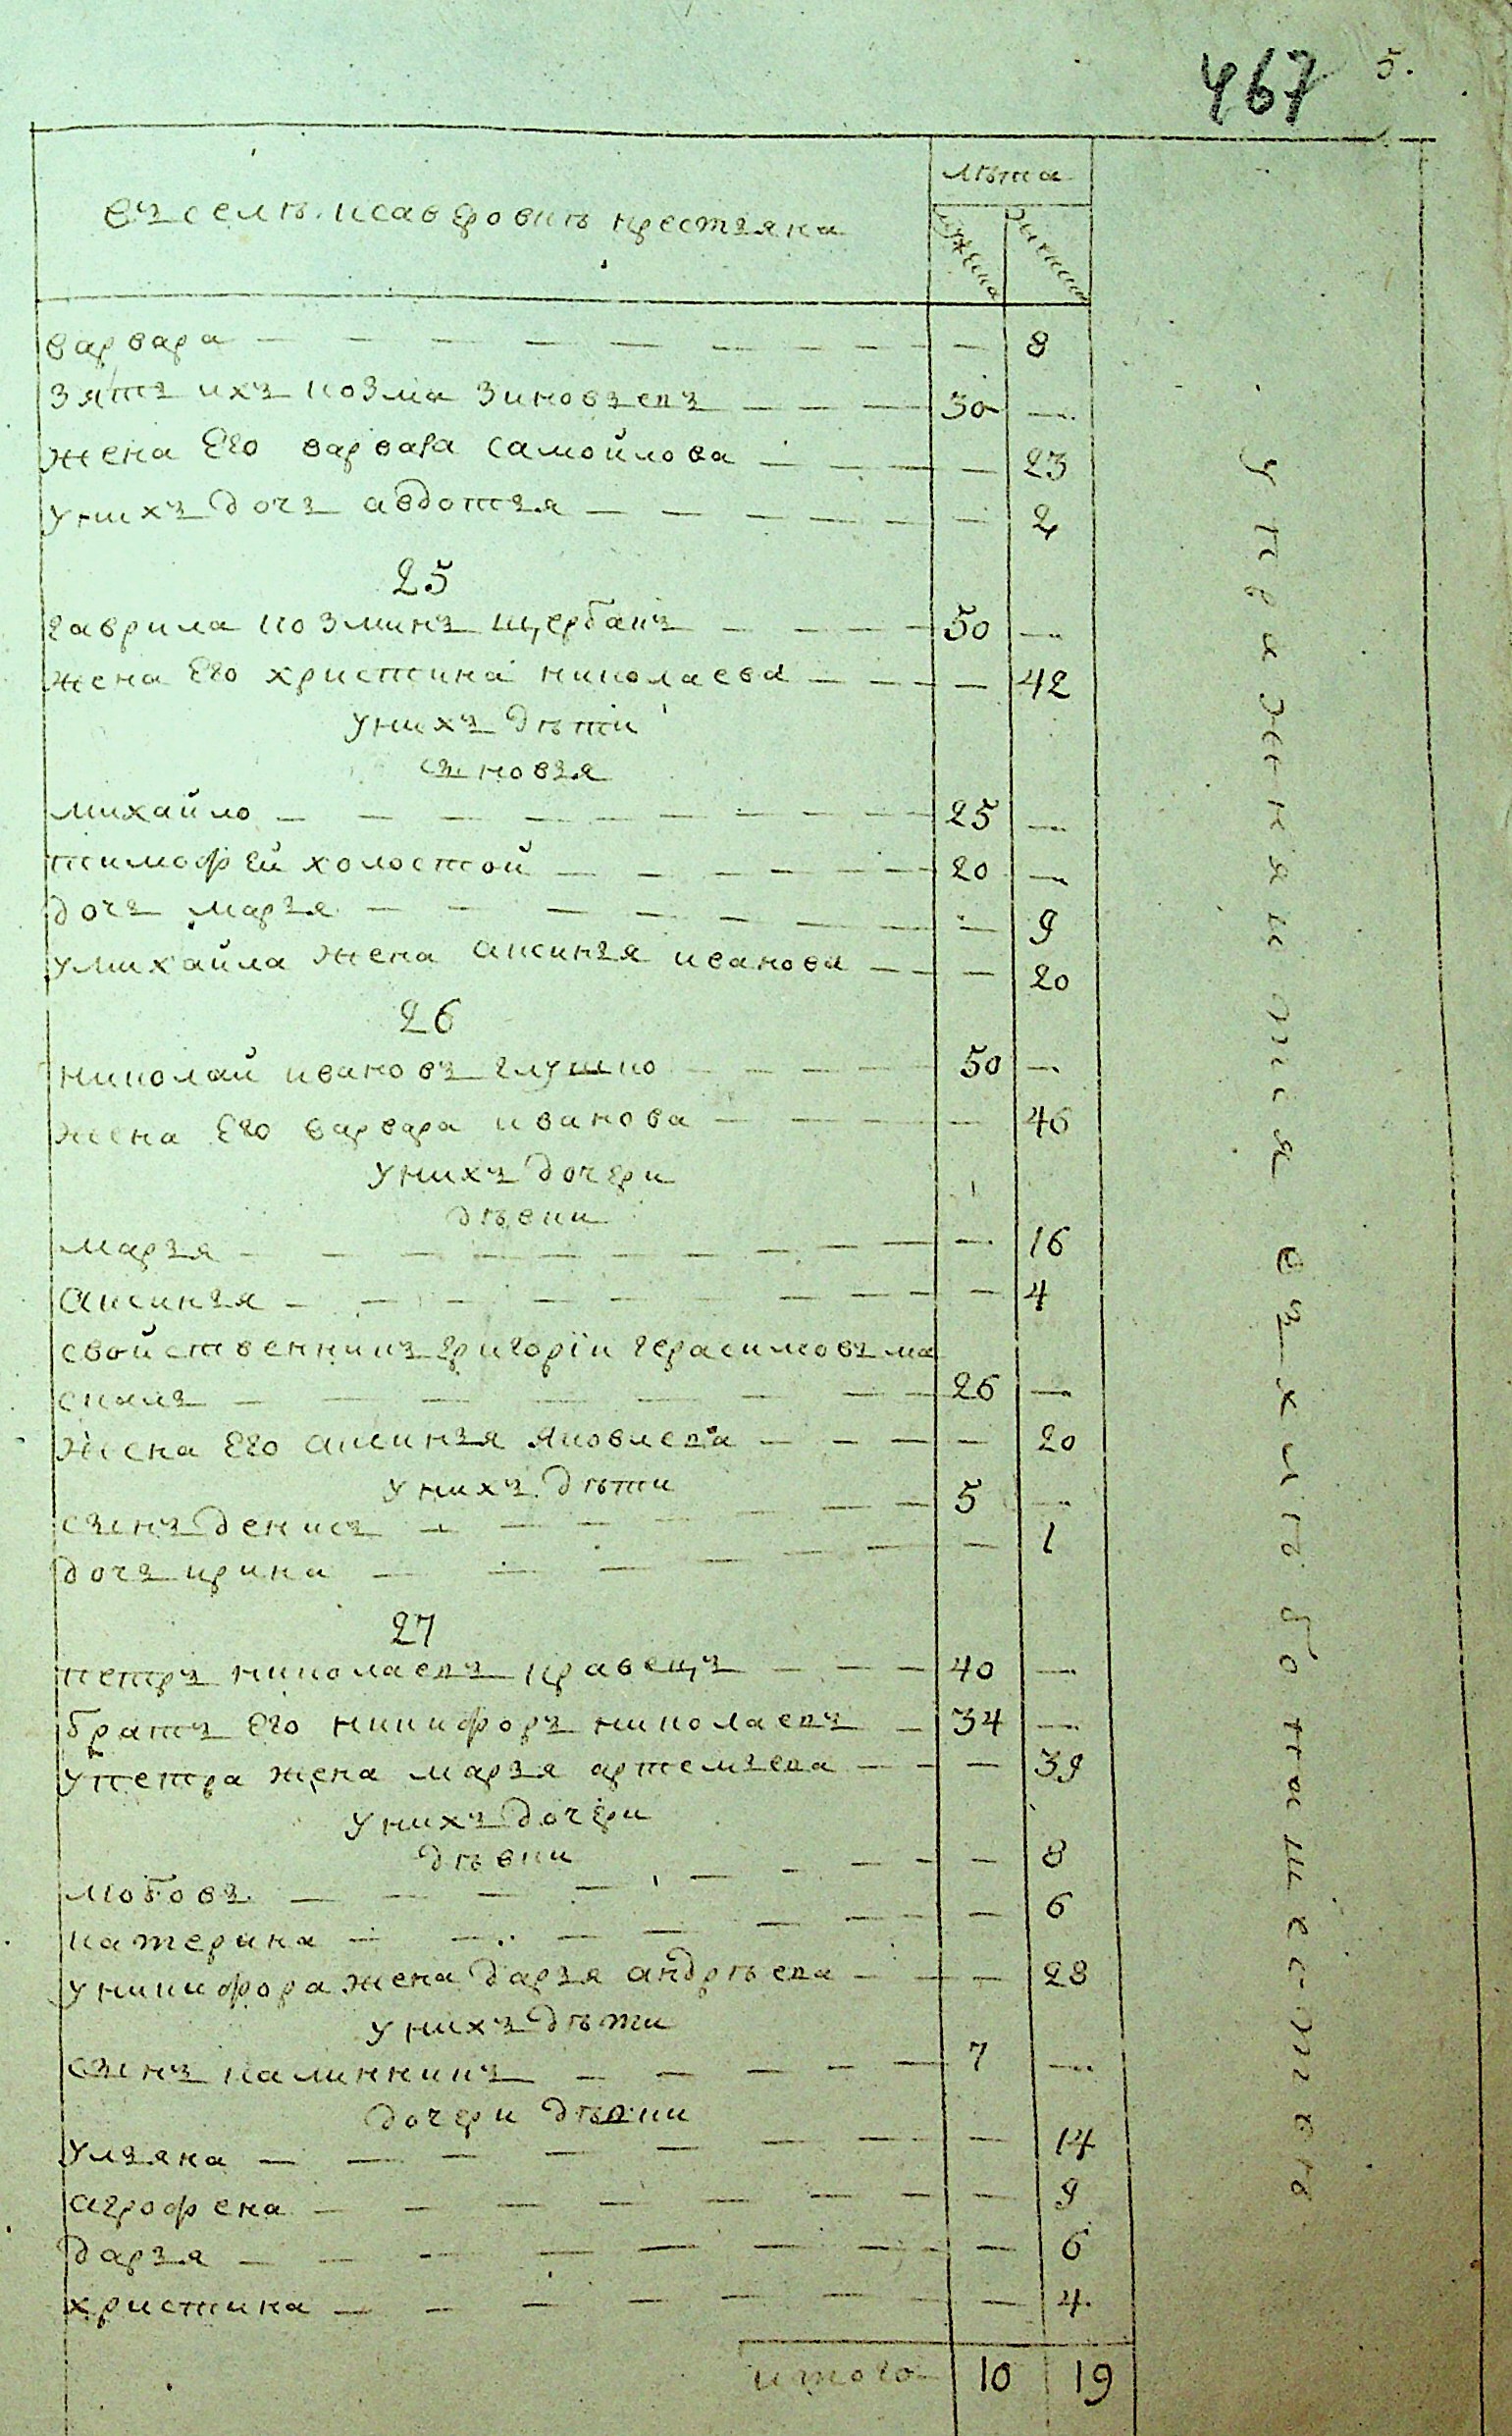 467 5.
лѣта
въ селѣ исавровкѣ крестьяна
мужеска женска
варвара — 8
зять ихъ козма зиновьевъ 30 —
жена Его варвара самойлова — 23
у нихъ дочь авдотья — 2
25
гаврила козминъ щербакъ 50 —
жена Его христина николаева — 42
у нихъ дѣти
сыновья
михайло 25 —
тимофей холостой 20 —
дочь марья — 9
у михайла жена аксинья иванова — 20
26
николай ивановъ глушко 50 —
жена Его варвара иванова — 46
у нихъ дочери
дѣвки
марья — 16
аксинья — 4
свойственникъ григорій герасимовъ мо
скаль 26 —
жена Его аксинья яковлева — 20
у нихъ дѣти
сынъ денисъ 5 —
дочь ирина — 1
27
петръ николаевъ кравецъ 40 —
братъ Его никифоръ николаевъ 34 —
у петра жена марья артемьева — 39
у нихъ дочери
дѣвки
любовь — 8
катерина — 6
у никифора жена дарья андрѣева — 28
у нихъ дѣти
сынъ калинникъ 7 —
дочери дѣвки
ульяна — 14
агрофена — 9
дарья — 6
христина — 4
итого 10 19
упражняится въ хлебопашества